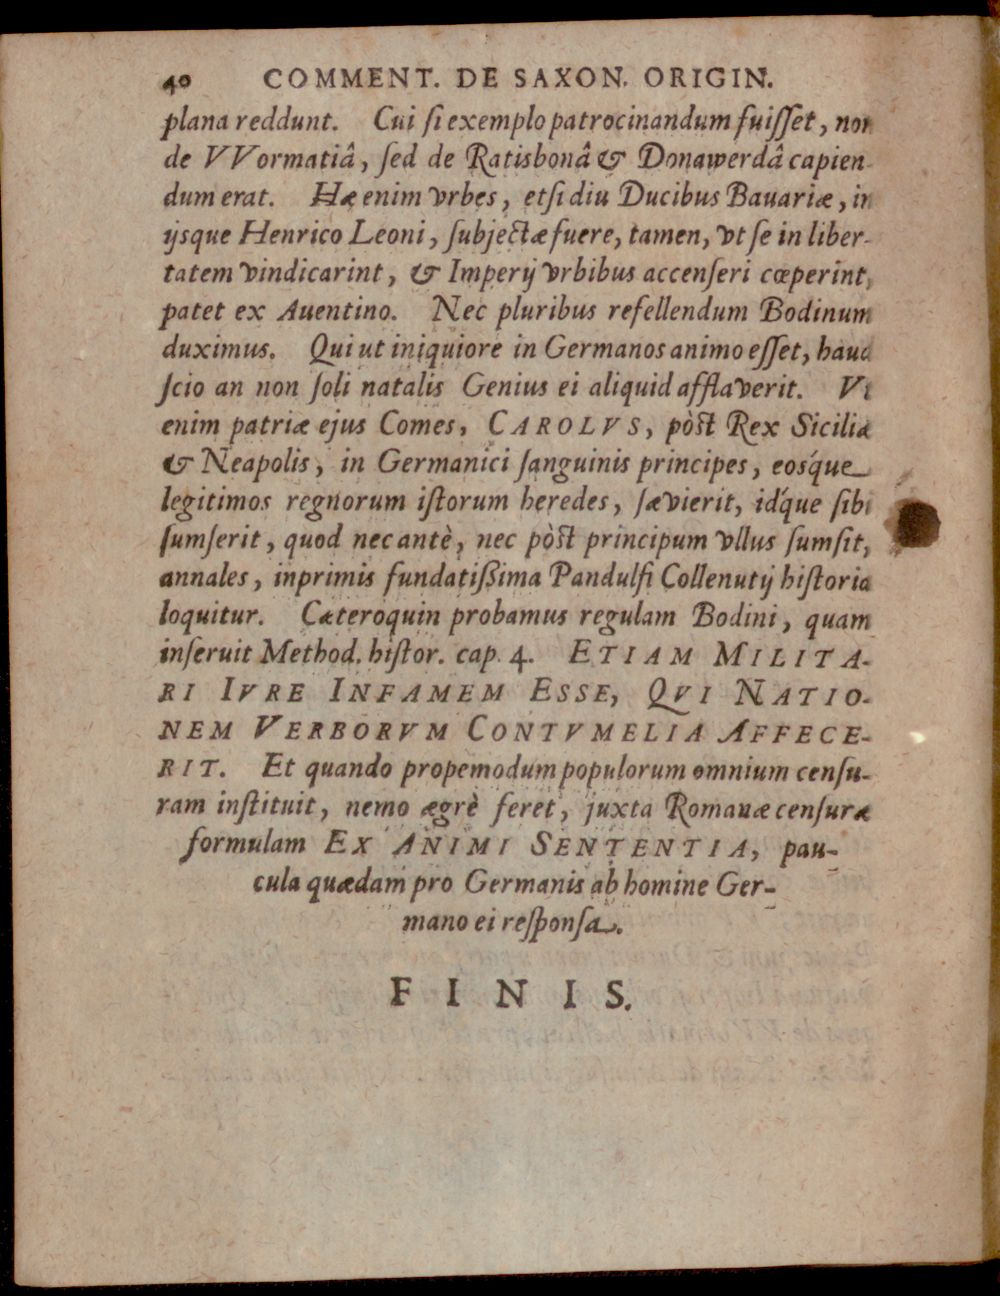 40 COMMENT. DE SAXON. ORIGIN.
plana reddunt. Cui si exemplo patrocinandum fuisset, non
de VVormatiâ, sed de Ratisbonâ & Donawerdâ capien-
dum erat. Hæ enim vrbes, etsi diu Ducibus Bauariæ, in
ijsque Henrico Leoni, subjectæ fuere, tamen, vt se in liber-
tatem vindicarint, & Imperij vrbibus accenseri cœperint,
patet ex Auentino. Nec pluribus refellendum Bodinum
duximus. Qui ut iniquiore in Germanos animo esset, haud
scio an non soli natalis Genius ei aliquid afflaverit. Vt
enim patriæ ejus Comes, CAROLVS, pòst Rex Siciliæ
& Neapolis, in Germanici sanguinis principes, eosq́ue
legitimos regnorum istorum heredes, sævierit, idq́ue sibi
sumserit, quod nec antè, nec pòst principum vllus sumsit,
annales, inprimis fundatißima Pandulfi Collenutij historia
loquitur. Cæteroquin probamus regulam Bodini, quam
inseruit Method. histor. cap. 4. ETIAM MILITA-
RI IVRE INFAMEM ESSE, QVI NATIO-
NEM VERBORVM CONTVMELIA AFFECE-
RIT. Et quando propemodum populorum omnium censu-
ram instituit, nemo ægrè feret, juxta Romanæ censuræ
formulam EX ANIMI SENTENTIA, pau-
cula quædam pro Germanis ab homine Ger-
mano ei responsa.
FINIS.